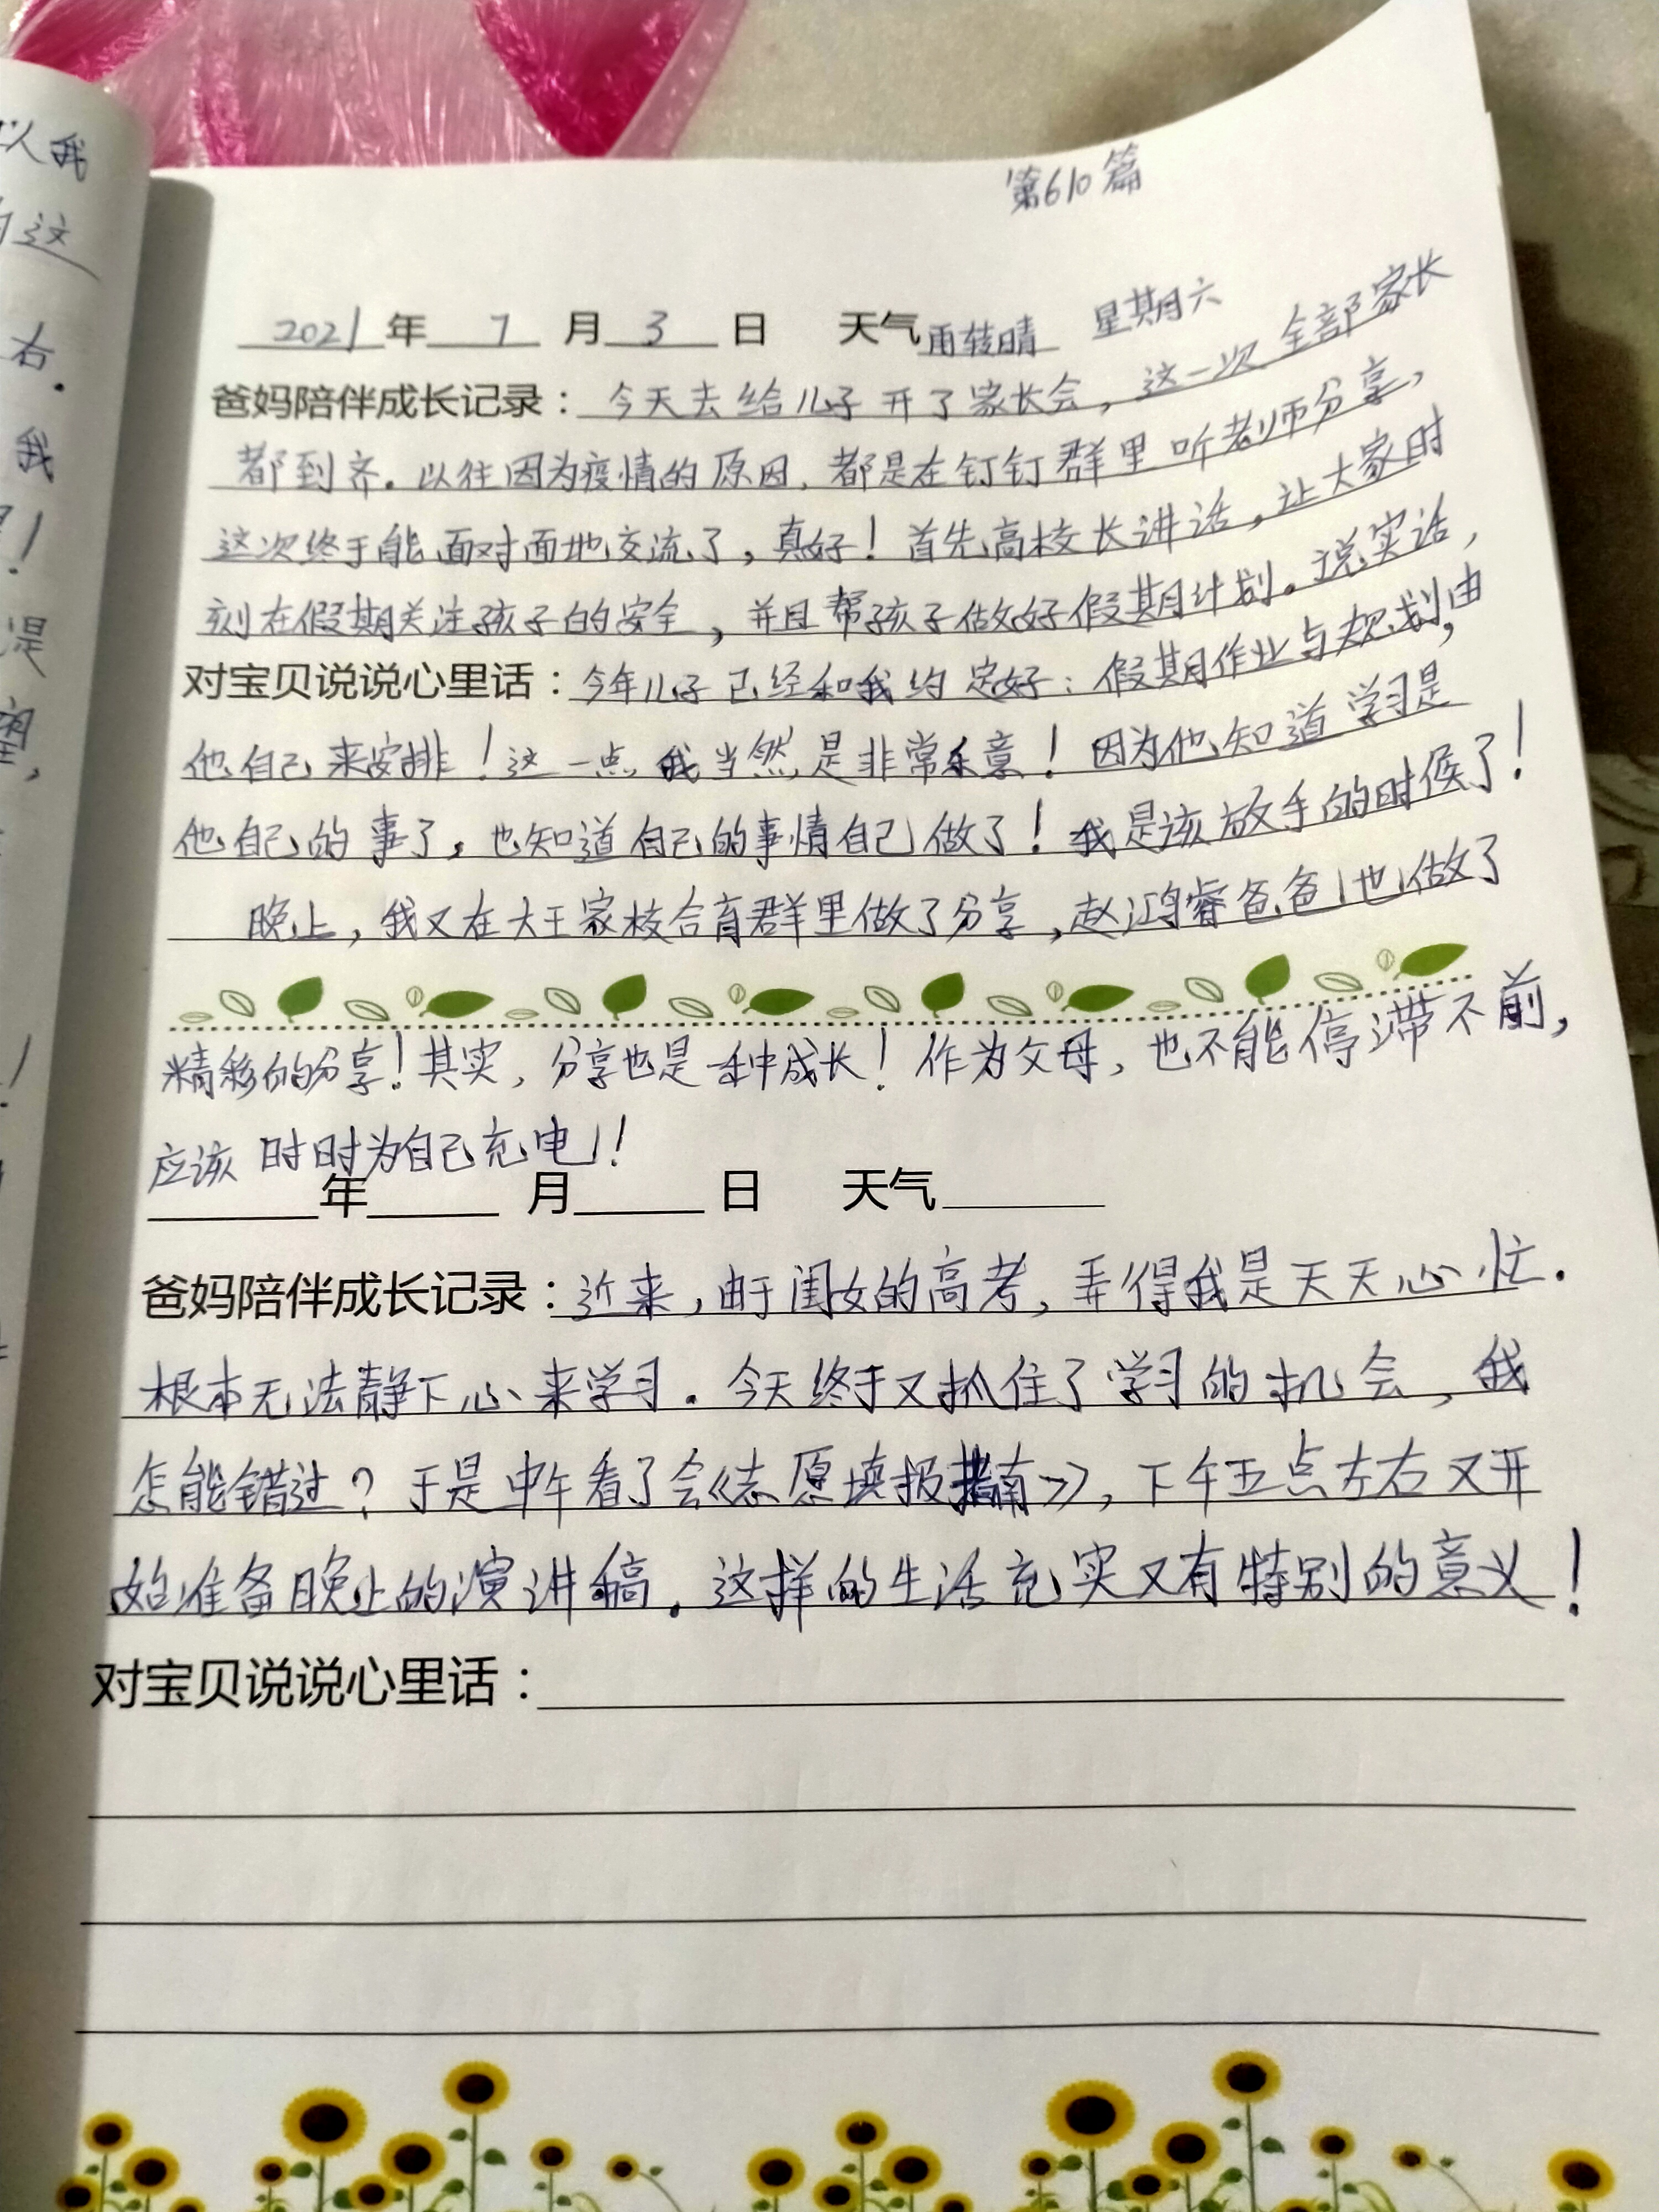 以我
这
右.
我
!
湜
第610篇
2021年 7 月 3 日 天气雨转晴 星期六
爸妈陪伴成长记录：今天去给儿子开了家长会，这一次全部家长
都到齐。以往因为疫情的原因，都是在钉钉群里听老师分享，
这次终于能面对面地交流了，真好！首先高校长讲话，让大家时
刻在假期关注孩子的安全，并且帮孩子做好假期计划。说实话，
对宝贝说说心里话：今年儿子已经和我约定好：假期作业与规划，由
他自己来安排！这一点，我当然是非常乐意！因为他知道学习是
他自己的事了，也知道自己的事情自己做了！我是该放手的时候了！
晚上，我又在大王家校合育群里做了分享，赵鸿睿爸爸也做了
精彩的分享！其实，分享也是一种成长！作为父母，也不能停滞不前，
应该时时为自己充电！
年 月 日 天气
爸妈陪伴成长记录：近来，由于闺女的高考，弄得我是天天心忙.
根本无法静下心来学习。今天终于又抓住了学习的机会，我
怎能错过？于是中午看了会《志愿填报指南》，下午五点左右又开
始准备晚上的演讲稿。这样的生活充实又有特别的意义！
对宝贝说说心里话：